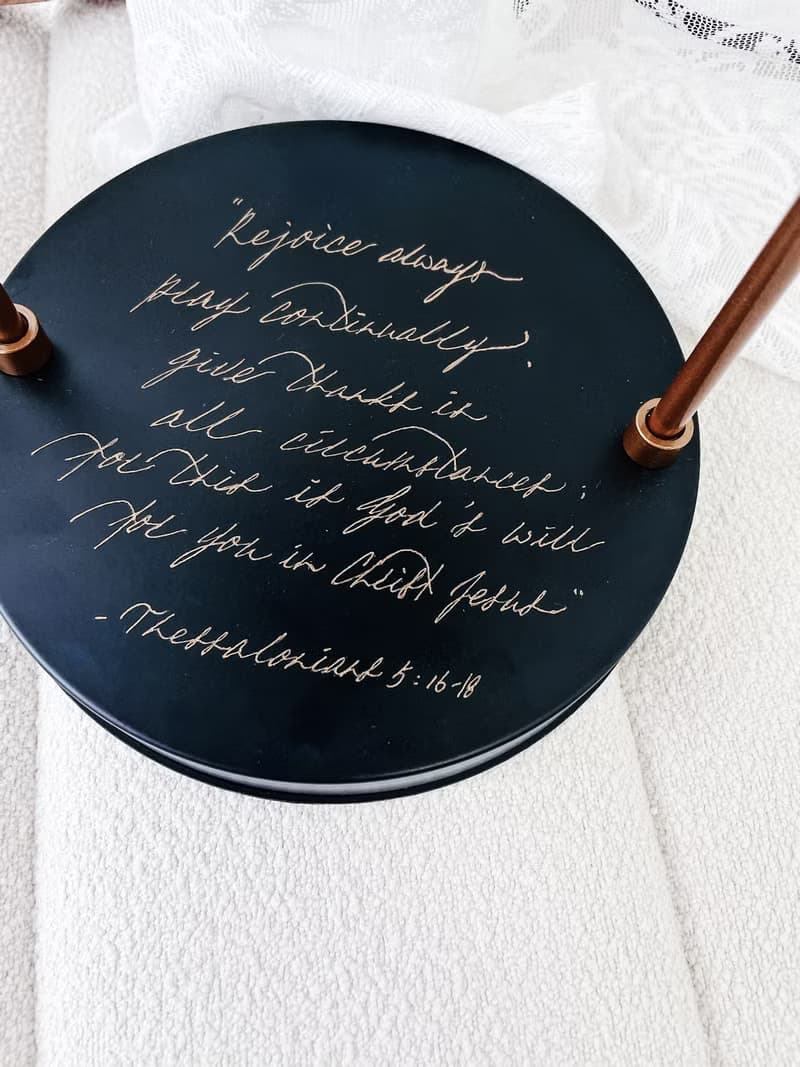 "Rejoice always
pray continually,
give thanks in
all circumstances;
for this is God's will
for you in Christ Jesus"
- Thessalonians 5:16-18